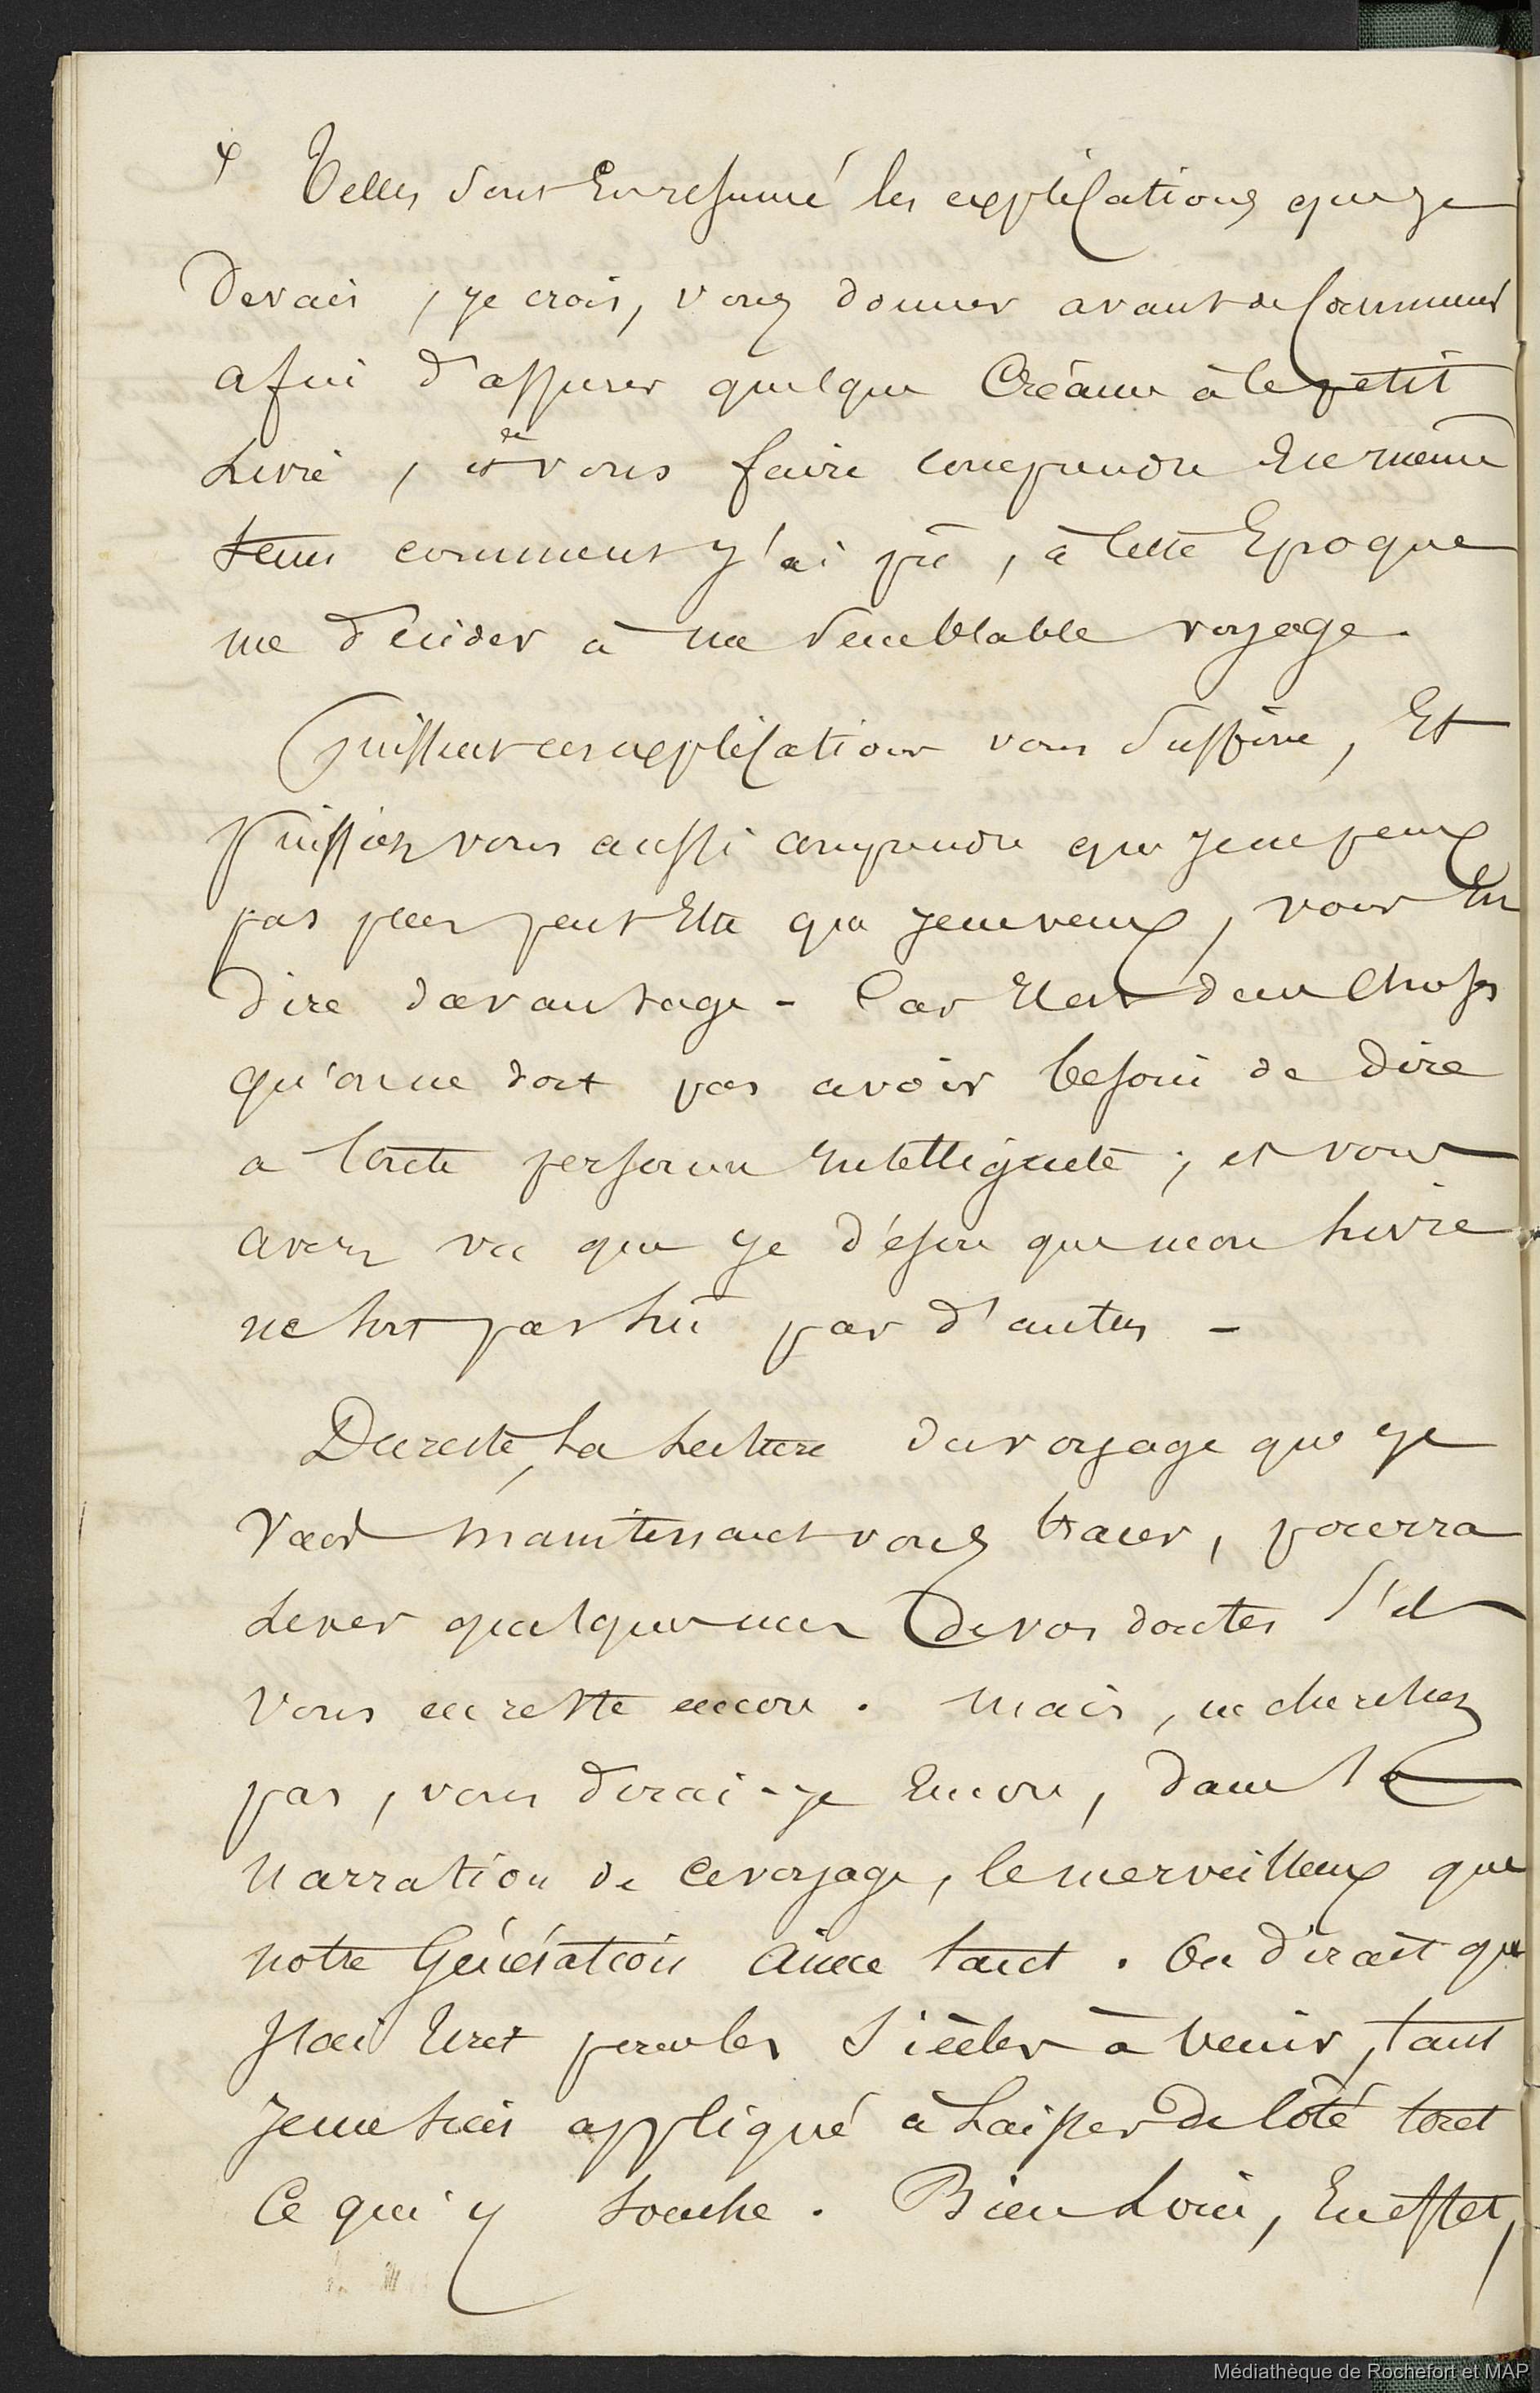 Telles sont en resumé les explications que je
devais, je crois, vous donner avant de commencer
afin d'assurer quelque créance à ce petit
Livre, et de vous faire comprendre en même
tems comment j'ai pû, à cette Epoque
me décider à un semblable voyage.
Puissent ces explications vous suffire, Et
puissiez vous aussi comprendre que je ne peux
pas plus peut être que je ne veux, vous en
dire davantage - Car il est des choses
qu'on ne doit pas avoir besoin de dire
a toute personne intelligente ; et vous
avez vu que je désire que mon Livre
ne soit pas lû par d'autres -
Du reste, La Lecture du voyage que je
vais maintenant vous tracer, pourra
Lever quelques uns de vos doutes s'il
vous en reste encore. Mais, ne cherchez
pas, vous dirai-je encore, dans la
narration de ce voyage, le merveilleux que
notre Génération aime tant. On dirait que
j'ai écrit pour les siècles à venir, tant
je me suis appliqué à Laisser de côté tout
ce qui y touche. Bien Loin, En effet,
Médiathèque de Rochefort et MAP